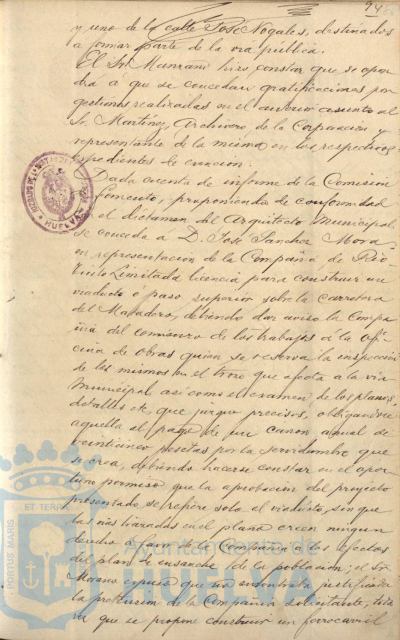 94
y uno de la calle José Nogales, destinados
a formar parte de la vía pública.
El Sr. Manzano hizo constar que se opon
drá a que se concedan gratificaciones por
gestiones realizadas en el anterior asunto al
Sr. Martinez, Archivero de la Corporacion y
representante de la misma en los respectivos
expedientes de
Dada cuenta de informe de la Comisión
Fomento, proponiendo de conformidad
al dictamen del Arquitecto Municipal,
se conceda á D. José Sanchez Mora
en representación de la Compañía de Rio
Tinto Limitada licencia para construir un
viaducto ó paso superior sobre la carretera
del Matadero, debiendo dar aviso la Compa
ñia del comienzo de los trabajos á la ofi
cina de Obras quien se reserva la inspección
de los mismos en el trozo que afecta á la via
municipal, así como el examen de los planos,
detalles etc, que juzgue precisos, obligandose
aquella al pago de un canon anual de
veinticinco pesetas por la servidumbre que
se crea, debiendo hacerse constar en el opor
tuno permiso que la aprobación del proyecto
presentado se refiere solo al viaducto, sin que
las vias trazadas en el plano creen ningun
derecho a favor de la Compañía a los efectos
del plan de ensanche de la población; el Sr.
Moreno expuso que no encontraba justificada
la pretension de la Compañia solicitante, toda
vez que se propone construir un ferrocarril
HUELVA
Ayuntamiento de
HUELVA
PORTUS MARIS
ET TERRAE